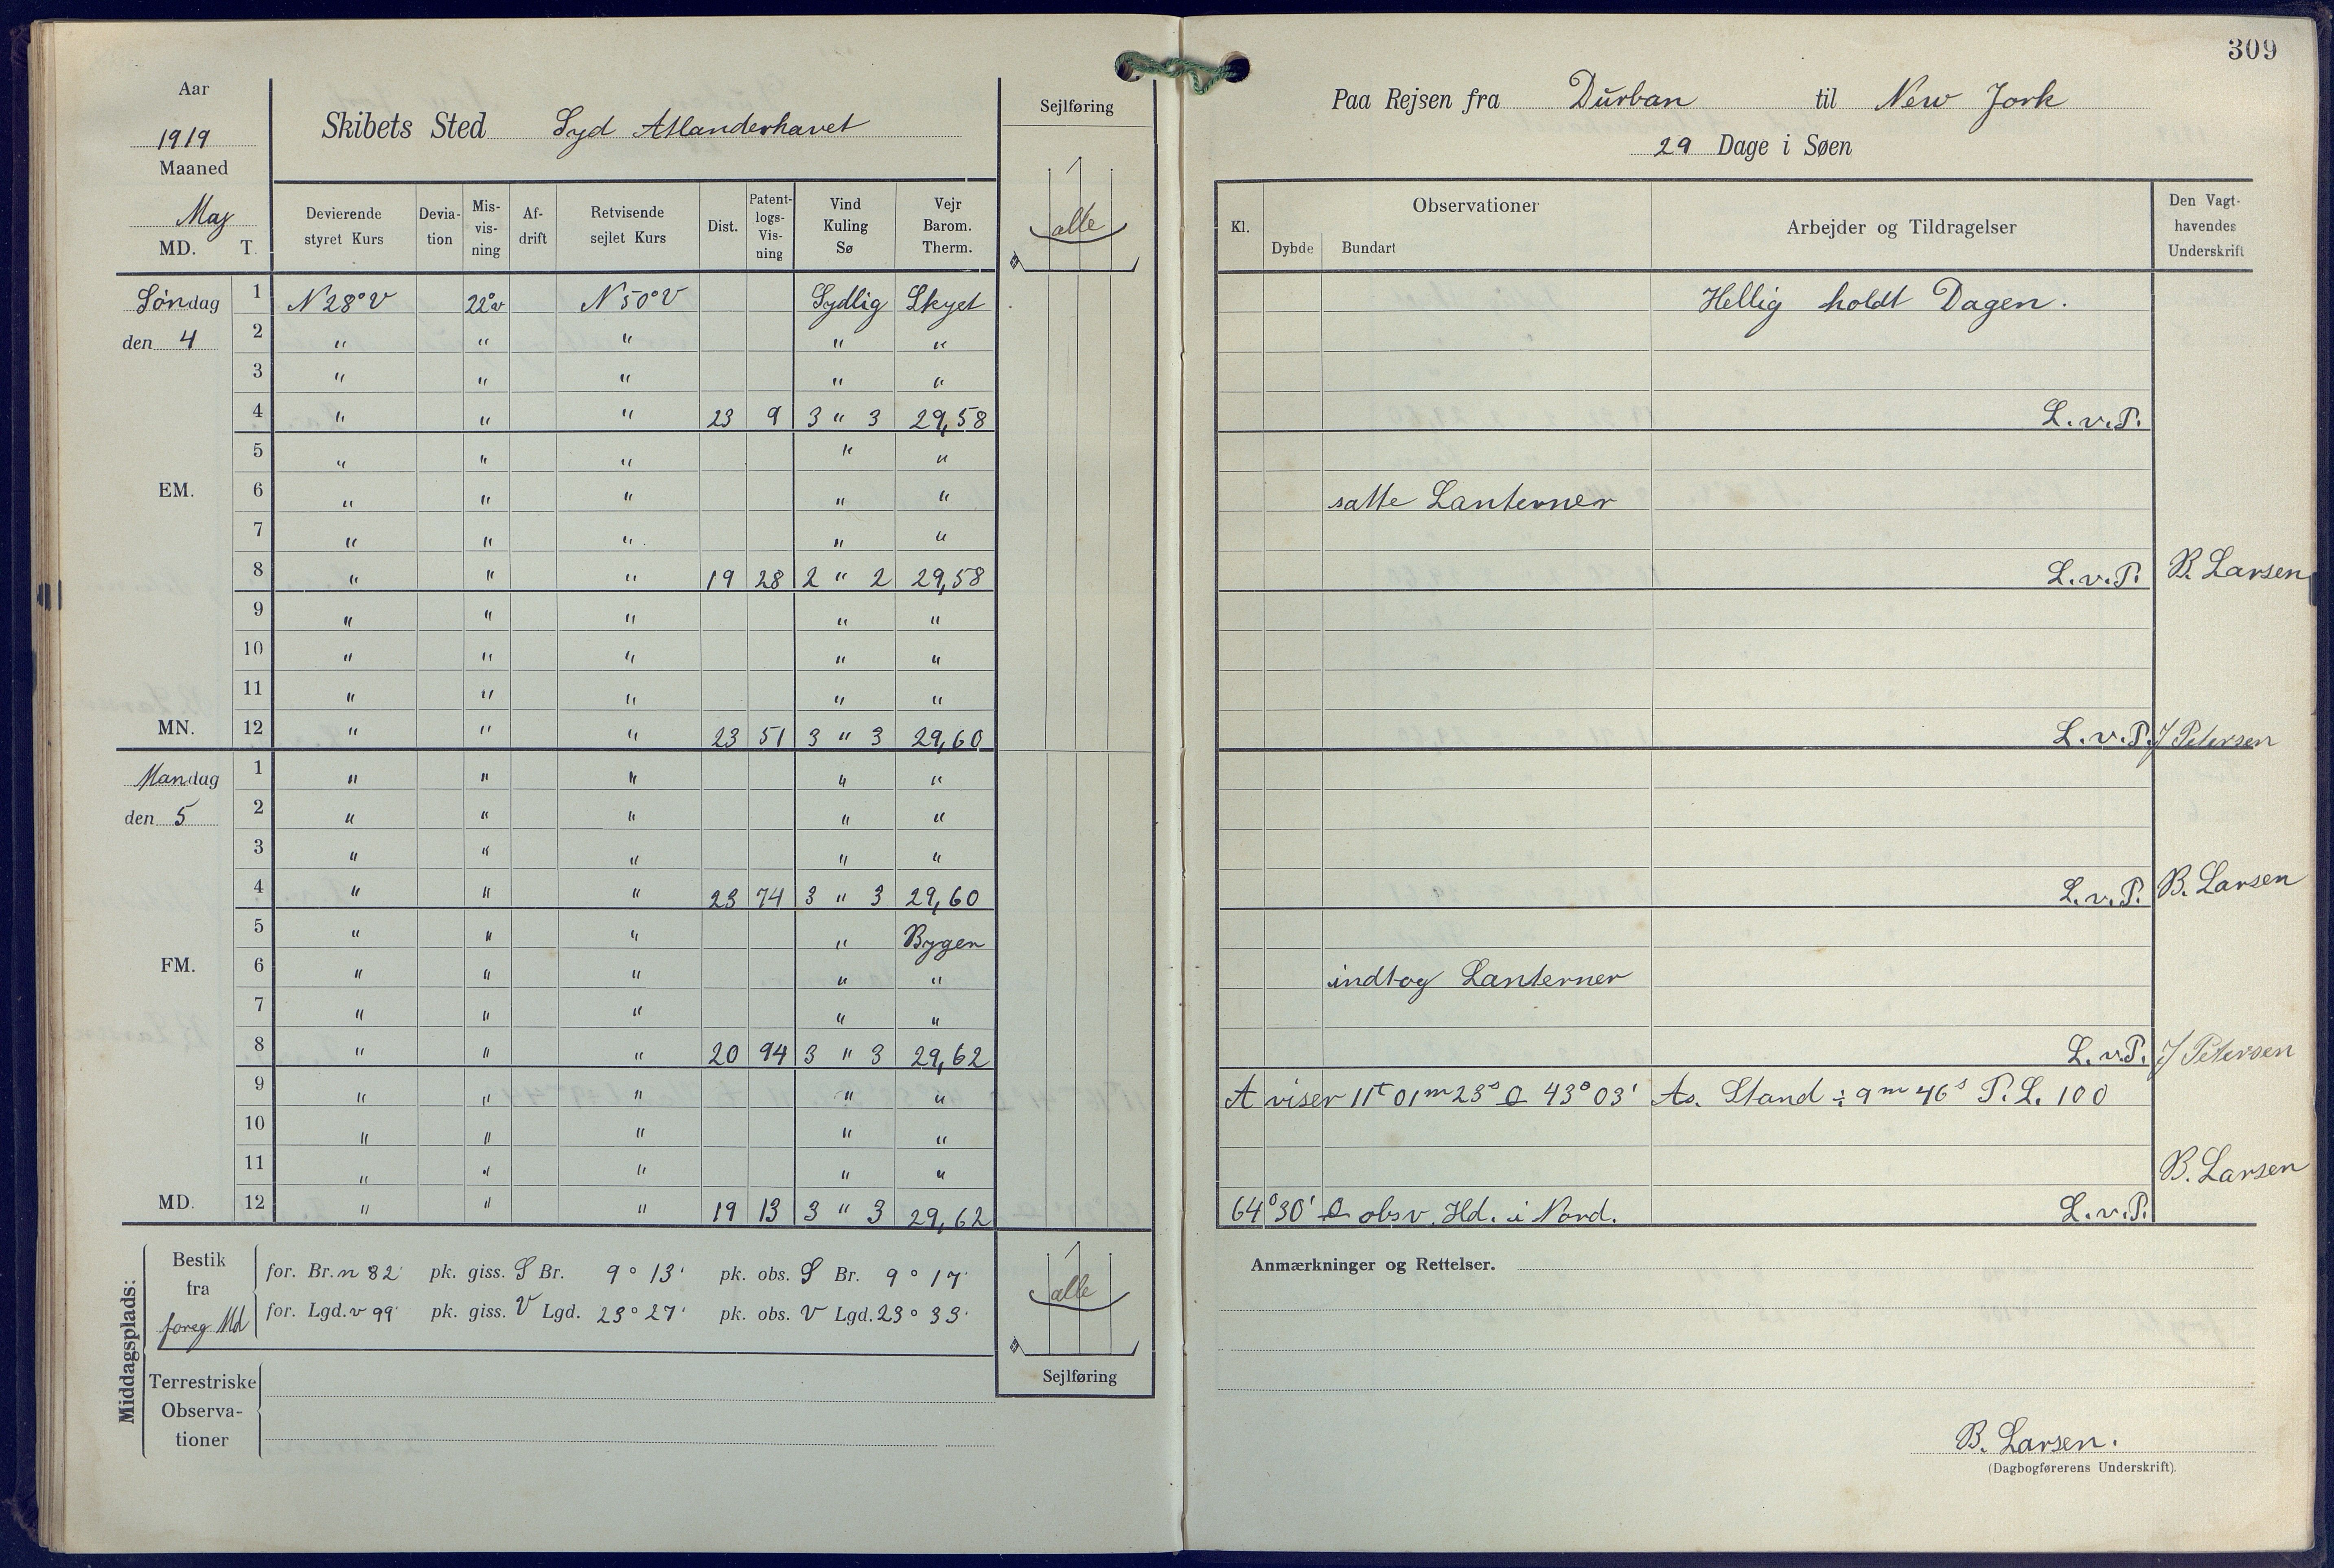 309
Aar
1919
Maaned
May
MD. T.
Skibets Sted Syd Atlanderhavet
Devierende styret Kurs
Devia-tion
Mis-vis-ning
Af-drift
Retvisende sejlet Kurs
Dist.
Patent-logs-Vis-ning
Vind Kuling Sø
Vejr Barom. Therm.
Sejlføring
alle
Søndag 1 N 28° V 22° v N 50° V Sydlig Skyet
den 4 2 " " " " "
3 " " " " "
4 " " " 23 9 3 " 3 29,58
5 " " " " "
EM. 6 " " " " "
7 " " " " "
8 " " " 19 28 2 " 2 29,58
9 " " " " "
10 " " " " "
11 " " " " "
MN. 12 " " " 23 51 3 " 3 29,60
Mandag 1 " " " " "
den 5 2 " " " " "
3 " " " " "
4 " " " 23 74 3 " 3 29,60
5 " " " " Byger
FM. 6 " " " " "
7 " " " " "
8 " " " 20 94 3 " 3 29,62
9 " " " " "
10 " " " " "
11 " " " " "
MD. 12 " " " 19 13 3 " 3 29,62
Middagsplads:
Bestik fra foreg Md
for. Br. n 82' pk. giss. S Br. 9° 13' pk. obs. S Br. 9° 17'
for. Lgd. v 99' pk. giss. V Lgd. 23° 27' pk. obs. V Lgd. 23° 33'
Terrestriske
Observa-
tioner
alle
Sejlføring
Paa Rejsen fra Durban til New Jork
29 Dage i Søen
Kl.
Observationer
Dybde Bundart
Arbejder og Tildragelser
Den Vagt-havendes Underskrift
Hellig holdt Dagen.
L. v. P.
satte Lanterner
L. v. P. B. Larsen
L. v. P. J Petersen
L. v. P. B. Larsen
indtog Lanterner
L. v. P. J Petersen
A viser 11t 01m 23s 43° 03' As. Stand ÷ 9m 46s P. L. 100
B. Larsen
64° 30' obsv. Hd. i Nord. L. v. P.
Anmærkninger og Rettelser.
B. Larsen.
(Dagbogførerens Underskrift).